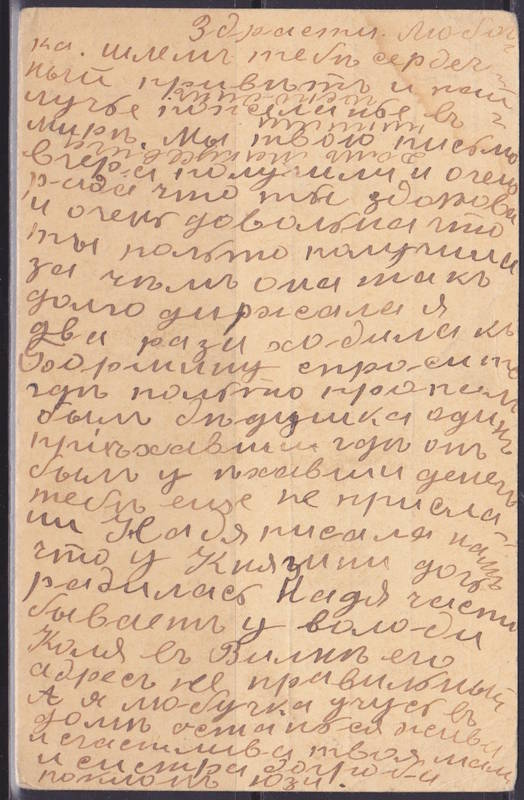 Здрасти. Любоч-
ка. шлемъ тебѣ сердеч-
ный привѣтъ и най-
лучье пожеланье въ
мирѣ. Мы твою письмо
вчера получили и очень
рада что ты здарова
и очень довольна что
ты польто получила
за чѣмъ она такъ
долго диржала я
два раза ходила къ
спросить
гдѣ польто пропали
былъ бѣдушка одинъ
пріѣхавши гдѣ отъ
былъ уѣхавши денегъ
тебѣ еще не присла-
ли Надя писала намъ
что у Князини дочь
радилась Надя часто
бываетъ у володи
Коля въ Вилнѣ его
адресъ не правильный
А я любучка учусь въ
домѣ остаться жива
и счастлива твоя мама
и систра
поклонъ Юзи.